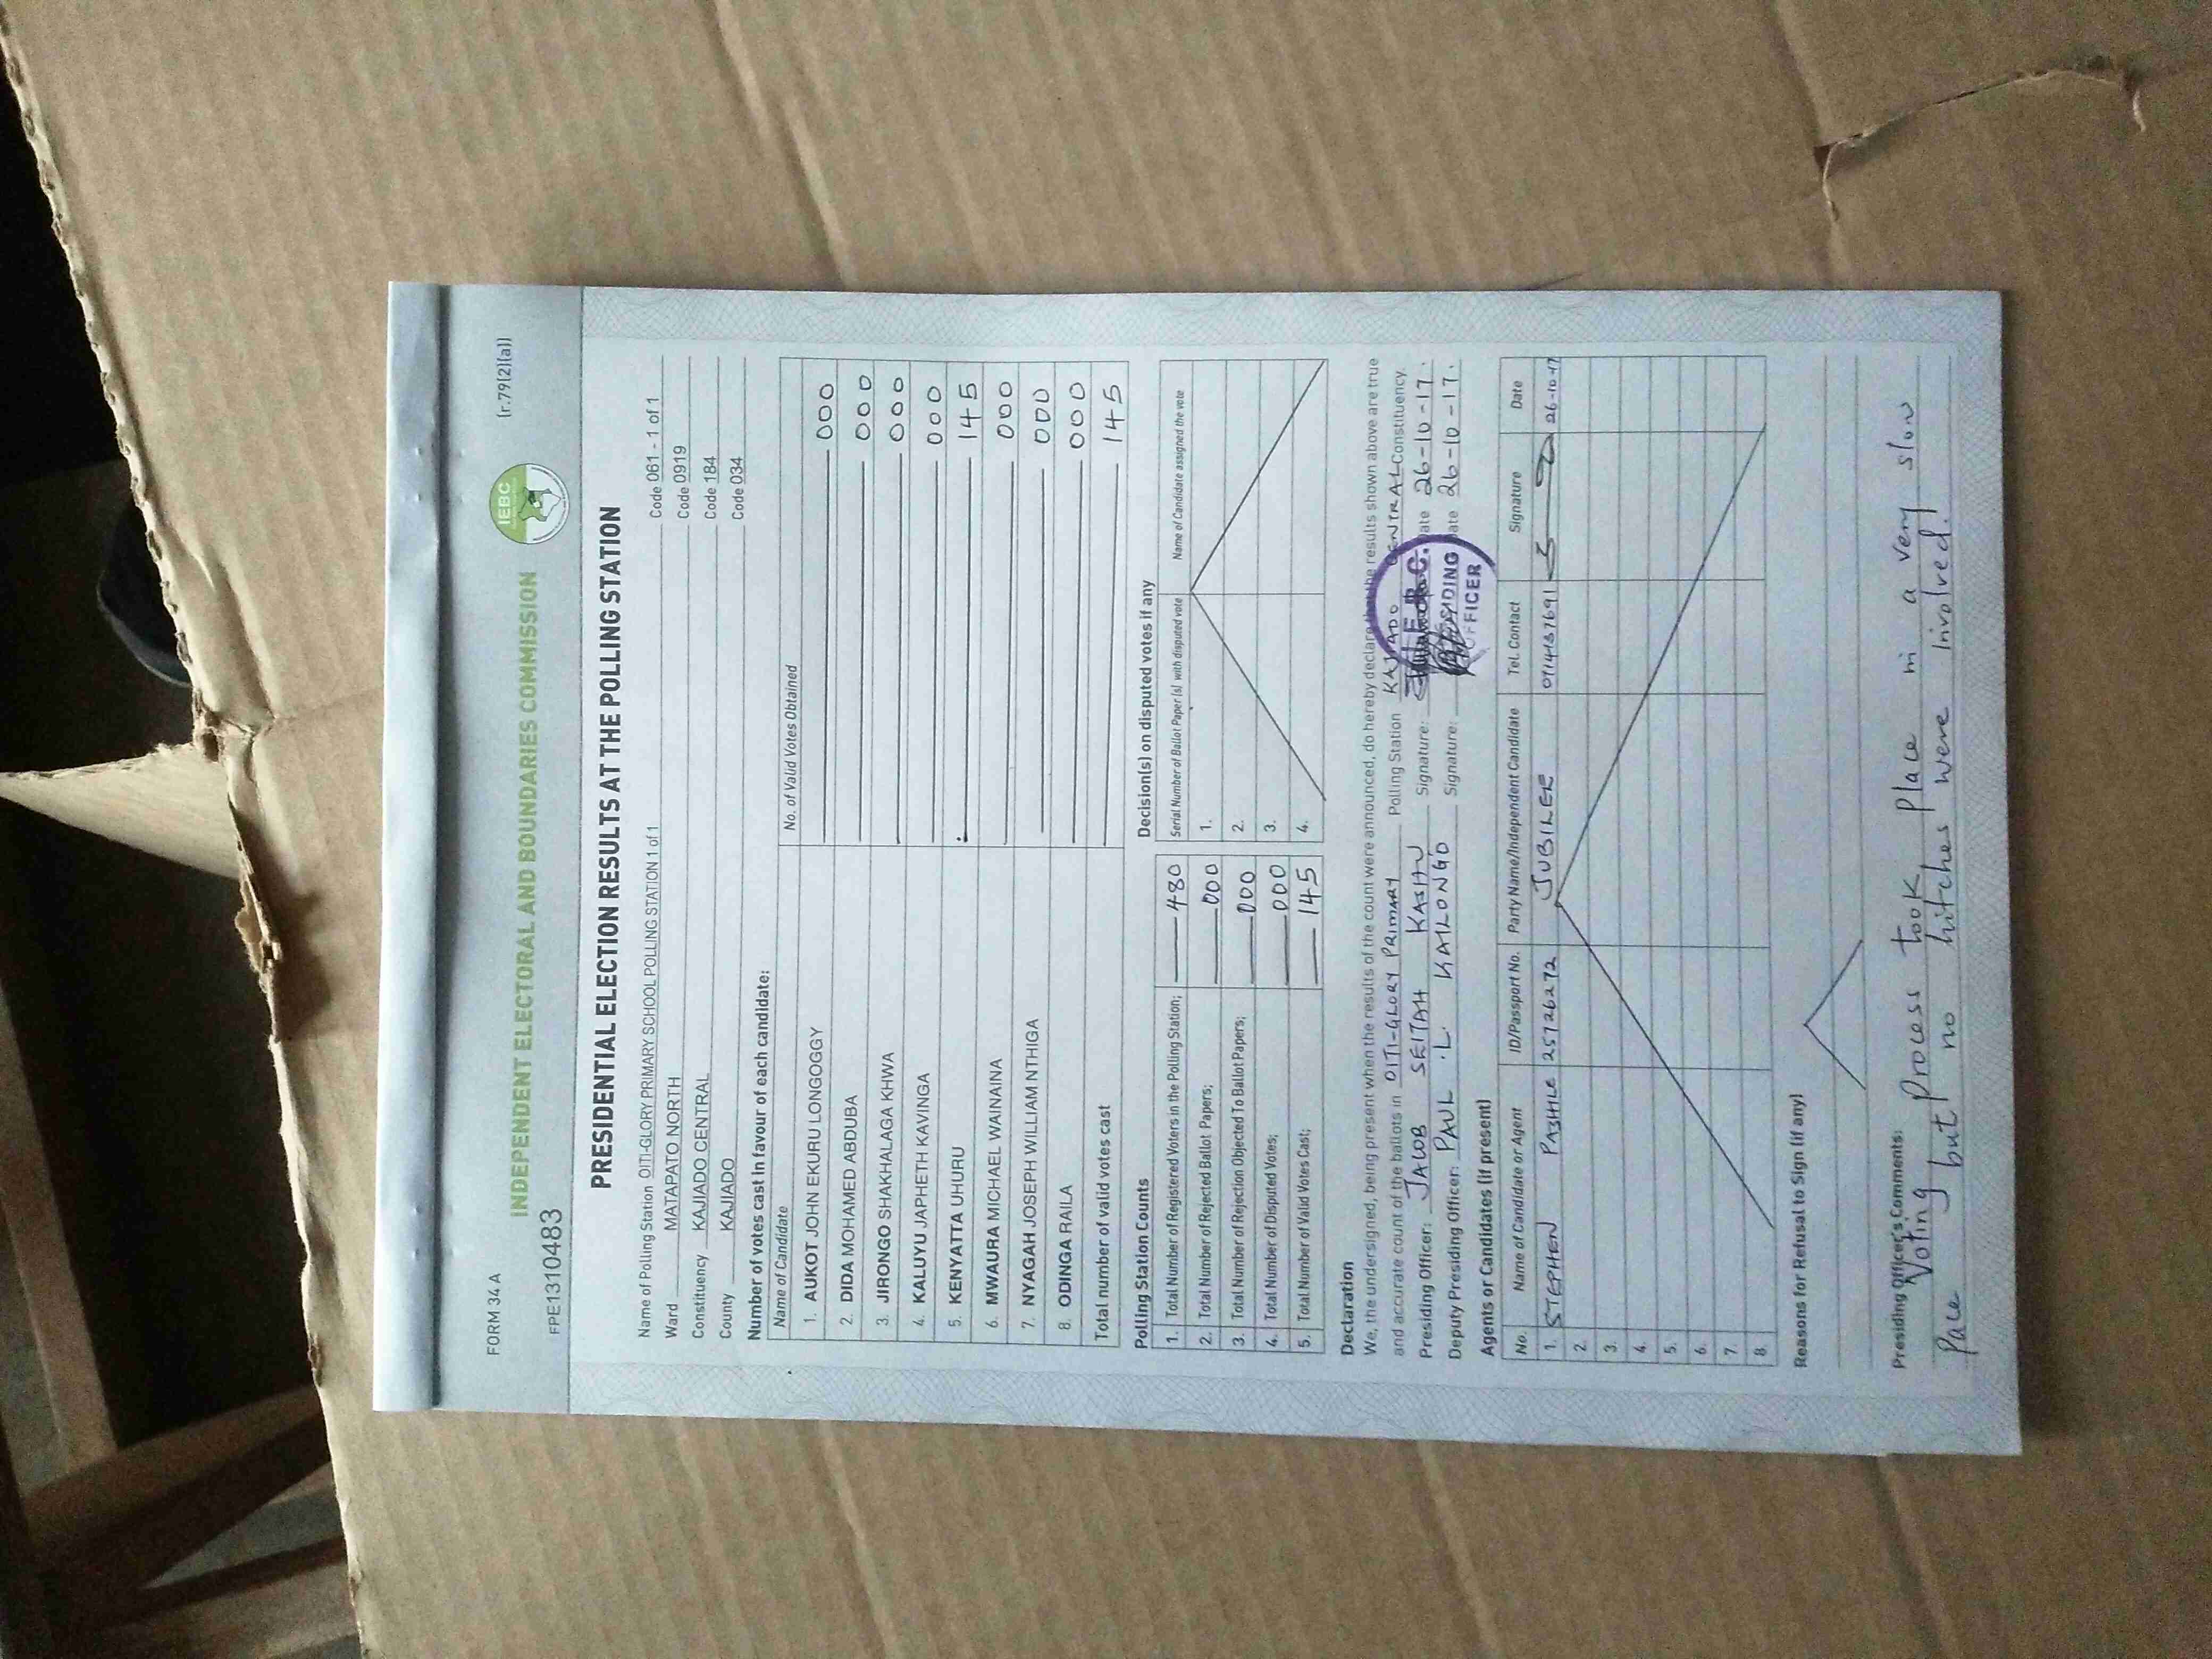 FORM 34 A
(r.79(2)(a))
INDEPENDENT ELECTORAL AND BOUNDARIES COMMISSION
IEBC
FPE1310483
PRESIDENTIAL ELECTION RESULTS AT THE POLLING STATION
Name of Polling Station OITI-GLORY PRIMARY SCHOOL POLLING STATION 1 of 1 Code 061 - 1 of 1
Ward MATAPATO NORTH Code 0919
Constituency KAJIADO CENTRAL Code 184
County KAJIADO Code 034
Number of votes cast in favour of each candidate:
Name of Candidate No. of Valid Votes Obtained
1. AUKOT JOHN EKURU LONGOGGY 000
2. DIDA MOHAMED ABDUBA 000
3. JIRONGO SHAKHALAGA KHWA 000
4. KALUYU JAPHETH KAVINGA 000
5. KENYATTA UHURU 145
6. MWAURA MICHAEL WAINAINA 000
7. NYAGAH JOSEPH WILLIAM NTHIGA 000
8. ODINGA RAILA 000
Total number of valid votes cast 145
Polling Station Counts Decision(s) on disputed votes if any
Serial Number of Ballot Paper (s) with disputed vote Name of Candidate assigned the vote
1. Total Number of Registered Voters in the Polling Station; 480 1.
2. Total Number of Rejected Ballot Papers; 000 2.
3. Total Number of Rejection Objected To Ballot Papers; 000 3.
4. Total Number of Disputed Votes; 000 4.
5. Total Number of Valid Votes Cast; 145
Declaration
We, the undersigned, being present when the results of the count were announced, do hereby declare that the results shown above are true
and accurate count of the ballots in OITI-GLORY PRIMARY Polling Station KAJIADO CENTRAL Constituency.
Presiding Officer: JACOB SEITAH KASHU Signature: Date 26-10-17.
Deputy Presiding Officer: PAUL .L. KAILONGO Signature: Date 26-10-17.
I.E.B.C.
PRESIDING
OFFICER
Agents or Candidates (if present)
No. Name of Candidate or Agent ID/Passport No. Party Name/Independent Candidate Tel. Contact Signature Date
1. STEPHEN 25726272 JUBILEE 26-10-17
2.
3.
4.
5.
6.
7.
8.
Reasons for Refusal to Sign (if any)
Presiding Officer's Comments:
Voting Process took Place in a very slow
Pace but no hitches were involved.